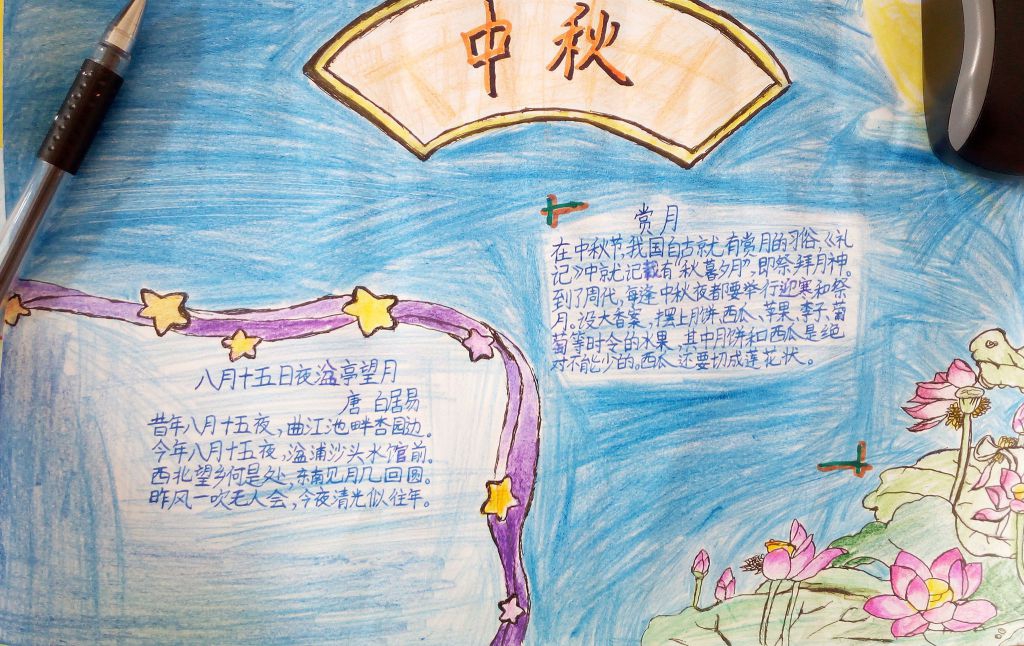 中秋
赏月
在中秋节,我国自古就有赏月的习俗,《礼
记》中就记载有“秋暮夕月”,即祭拜月神。
到了周代,每逢中秋夜都要举行迎寒和祭
月。设大香案,摆上月饼、西瓜、苹果、李子、葡
萄等时令的水果,其中月饼和西瓜是绝
对不能少的。西瓜还要切成莲花状。
八月十五日夜湓亭望月
唐 白居易
昔年八月十五夜,曲江池畔杏园边。
今年八月十五夜,湓浦沙头水馆前。
西北望乡何是处,东南见月几回圆。
昨风一吹无人会,今夜清光似往年。